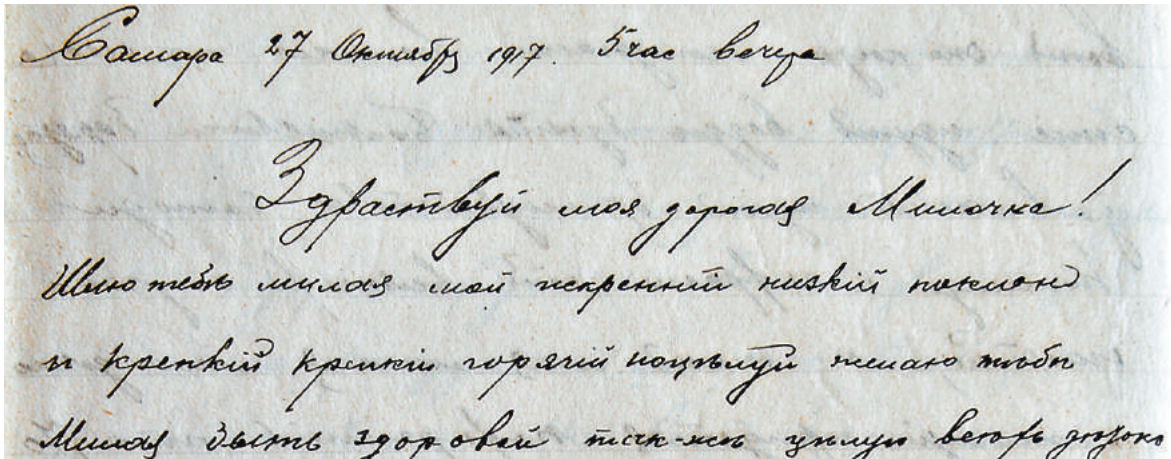 Самара 27 Октября 1917. 5 час вечера
Здраствуй моя дорогая Милочка!
Шлю тебѣ милая мой искренний низкий поклонъ
и крепкий крепкий горячий поцѣлуй желаю тебѣ
Милая быть здоровой так-жъ цѣлую